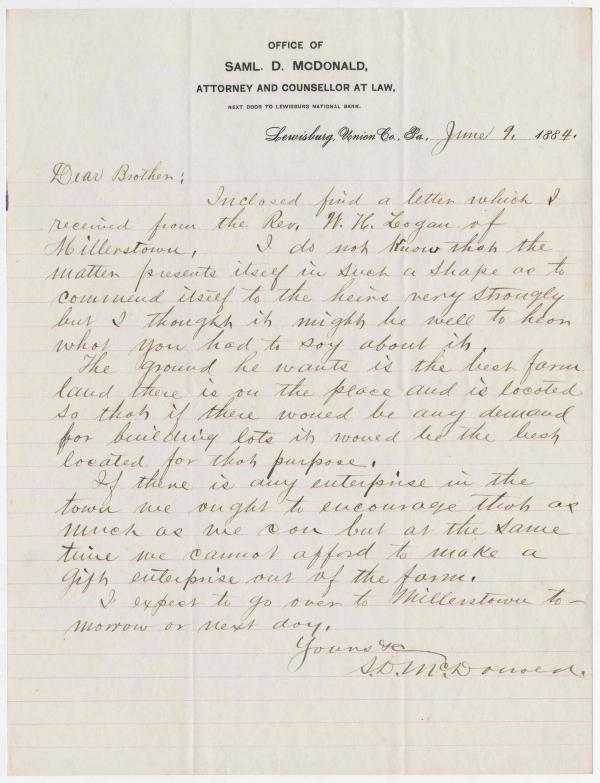 OFFICE OF
SAML. D. MCDONALD,
ATTORNEY AND COUNSELLOR AT LAW,
NEXT DOOR TO LEWISBURG NATIONAL BANK.
Lewisburg, Union Co., Pa., June 9, 1884.
Dear Brother:
Inclosed find a letter which I
received from the Rev. W. H. Logan of
Millerstown. I do not know that the
matter presents itself in such a shape as to
commend itself to the heirs very strongly
but I thought it might be well to hear
what you had to say about it.
The ground he wants is the best farm
land there is on the place and is located
so that if there would be any demand
for building lots it would be the best
located for that purpose.
If there is any enterprise in the
town we ought to encourage that as
much as we can but at the same
time we cannot afford to make a
gift enterprise out of the farm.
I expect to go over to Millerstown to-
morrow or next day.
Yours &c
S.D. McDonald.